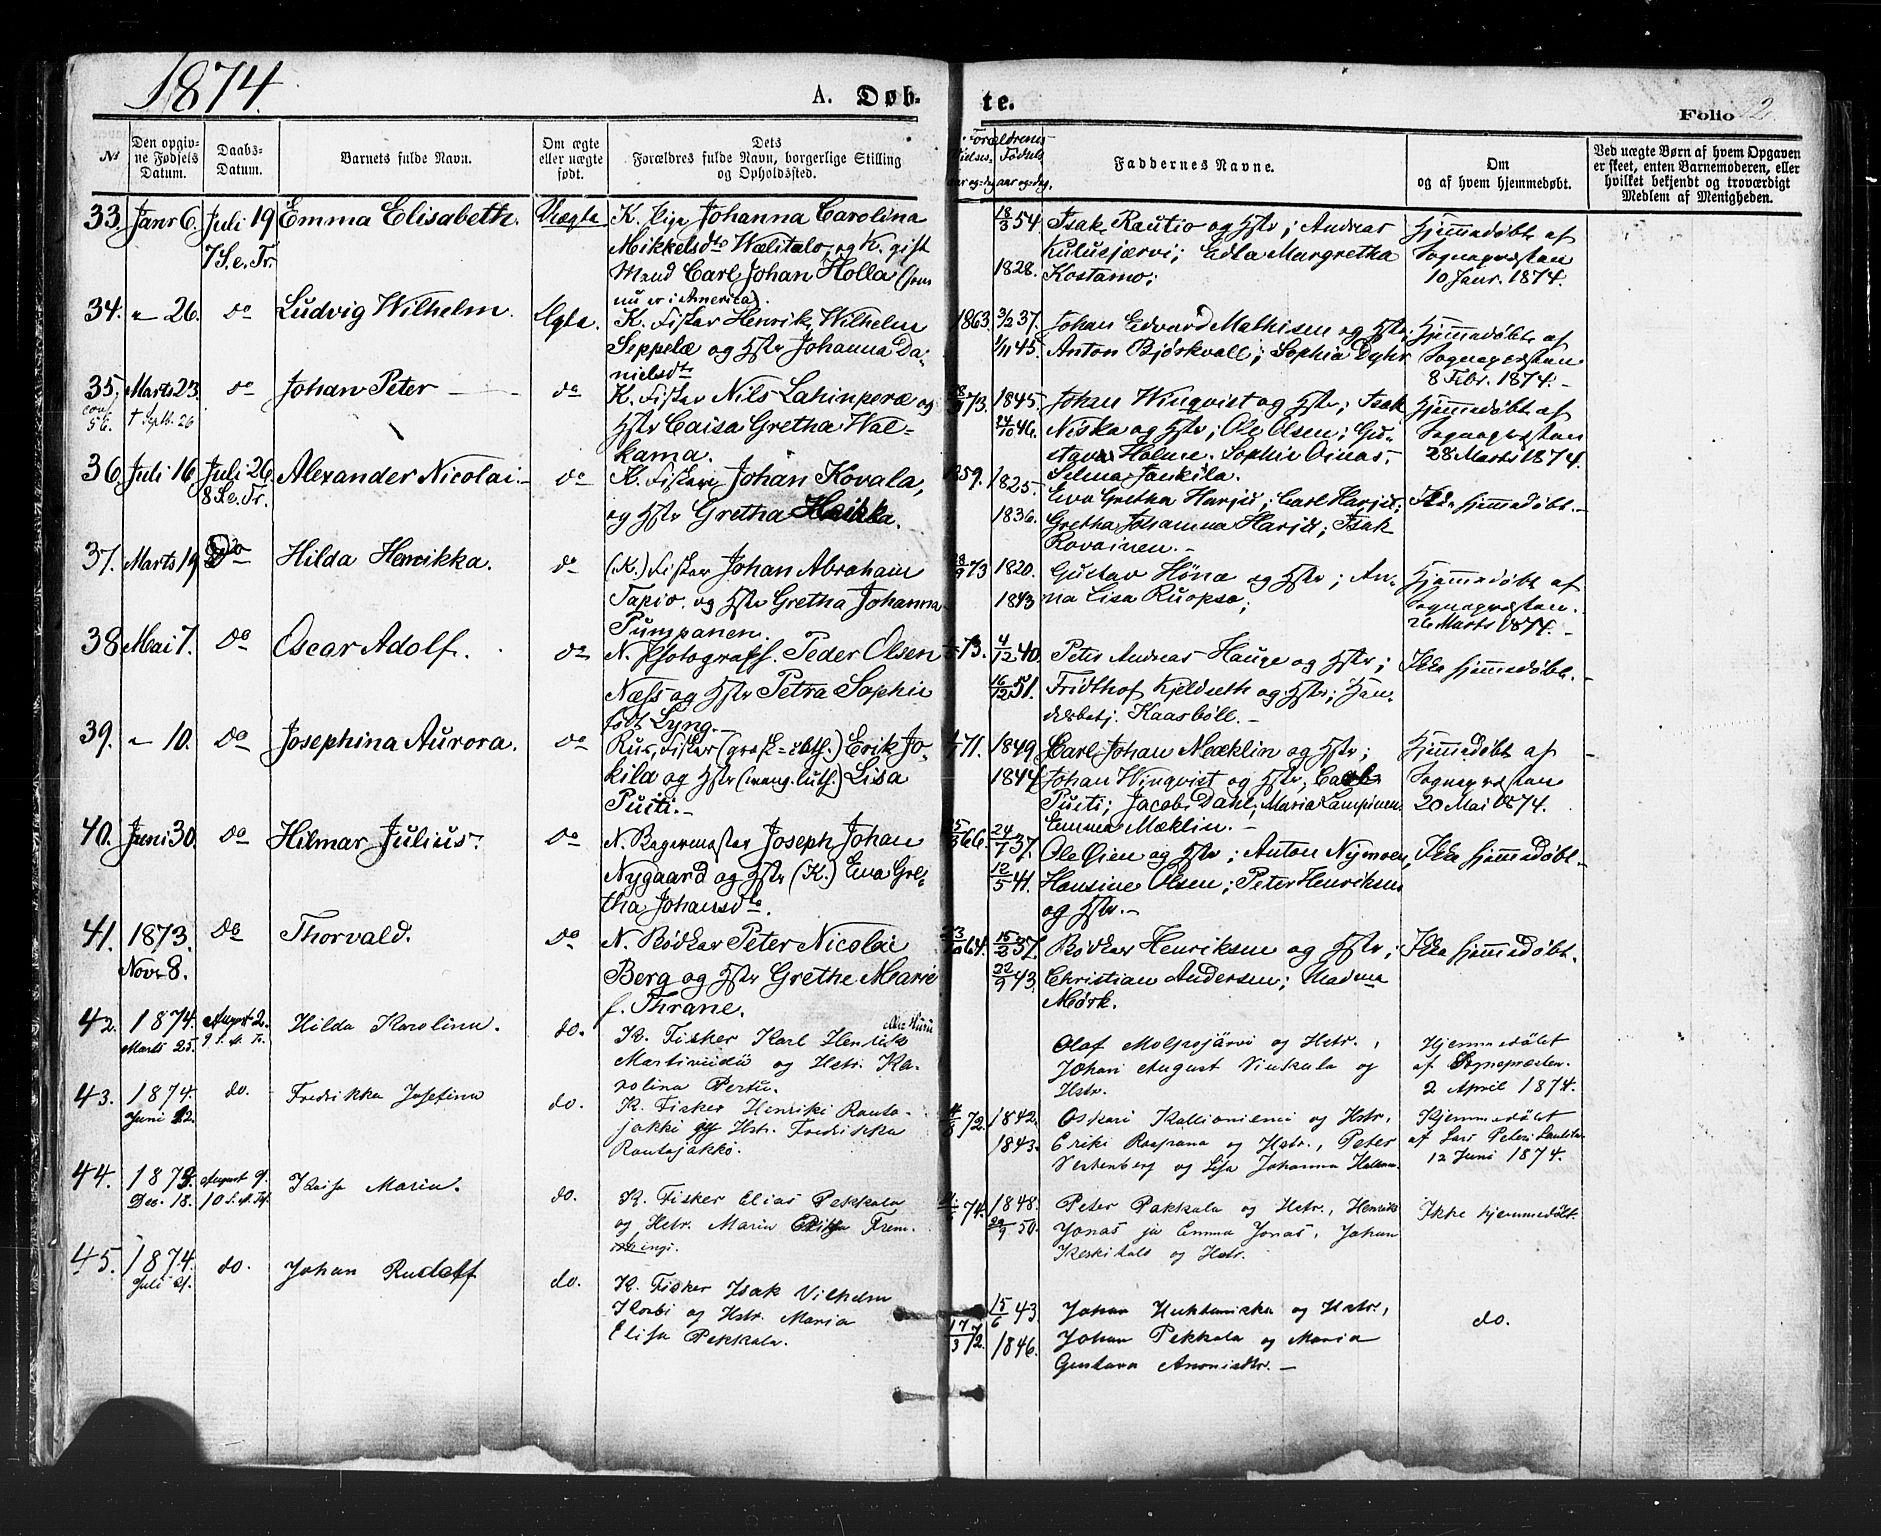 1874.
A. Døb-
te.
Folio 2.
No
Den opgiv-
ne Fødsels
Datum.
Daabs-
Datum.
Barnets fulde Navn.
Om ægte
eller uægte
født.
Dets
Forældres fulde Navn, borgerlige Stilling
og Opholdssted.
Forældrenes
Vielses-
aar og dag.
Fødsels
aar og dag.
Faddernes Navne.
Om
og af hvem hjemmedøbt.
Ved uægte Børn af hvem Opgaven
er skeet, enten Barnemoderen, eller
hvilket bekjendt og troværdigt
Medlem af Menigheden.
33. Janr 6. Juli 19
7 S. e. Tr.
Emma Elisabeth.
Uægte
K. Pige Johanna Carolina
Mikkelsdtr Wælitalo, og K. gift
Mand Carl Johan Holla (som
nu er i America).
18/3 54.
1828.
Isak Rautio og Hstr; Andreas
Kulusjærvi; Edla Margretha
Kostamo;
Hjemmedøbt af
Sognepræsten
10 Janr. 1874.
34. " 26. do
Ludvig Wilhelm.
Ægte.
K. Fisker Henrik Wilhelm
Seppelæ og Hstr Johanna Da-
nielsdtr
1863.
3/2 37.
1/11 45.
Johan Edvard Mathisen og Hstr;
Anton Bjørkvall; Sophia Dahr
Hjemmedøbt af
Sognepræsten
8 Febr. 1874. -
35. Marts 23. do
conf.
56.
† Septb. 26
Johan Peter
do
K. Fisker Nils Lahinperæ og
Hstr Caisa Gretha Wal-
kama.
73.
1845.
24/10 46.
Johan Winqvist og Hstr; Isak
Niska og Hstr; Ole Olsen; Gu-
stava Holme. Sophie Oinas;
Selma Jankila.
Hjemmedøbt af
Sognepræsten
28 Marts 1874.
36. Juli 16. Juli 26.
8 S. e. Tr.
Alexander Nicolai.
do
K. Fisker Johan Kovala,
og Hstr Gretha Heikka.
59.
1825.
1836.
Eva Gretha Harju; Carl Harju;
Gretha Johanna Harju; Isak
Rovainen. -
Ikke hjemmedøbt. -
37. Marts 19 Do
Hilda Henrikka.
do
(K.) Fisker Johan Abraham
Tapio. og Hstr Gretha Johanna
Pumpanen.
73
1820.
1843
Gustav Hønæ og Hstr; An-
na Lisa Ruopsa;
Hjemmedøbt af
Sognepræsten.
26 Marts 1874. -
38 Mai 7. do
Oscar Adolf.
do
N. Photograph. Peder Olsen
Næss og Hstr Petra Sophie
født Lyng. -
73.
4/12 40.
16/12 51.
Peter Andreas Hauge og Hstr;
Fridthof Kjeldseth og Hstr; Han-
delsbetj. Kaasbøll. -
Ikke hjemmedøbt. -
39. " 10. Do
Josephina Aurora.
do
Rus. Fisker (græsk-cath.) Erik Jo-
kila og Hstr (evang. luth.) Lisa
Puiti. -
71.
1849
1844
Carl Johan Mæklin og Hstr;
Johan Winqvist og Hstr, Carl
Puiti; Jacob Dahl; Maria Lampinen
Emma Mæklin. -
Hjemmedøbt af
Sognepræsten
20 Mai 1874.
40. Juni 30. Do
Hilmar Julius.
Do
N. Bagermester Joseph Johan
Nygaard og Hstr (K.) Eva Gre-
tha Johansdtr.
66.
24/1 37.
12/5 41.
Ole Øien og Hstr; Anton Nymoen,
Hansine Olsen; Peter Henriksen
og Hstr. -
Ikke hjemmedøbt. -
41. 1873.
Novr 8. Do
Thorvald.
Do
N. Bødker Peter Nicolai
Berg og Hstr Grethe Marie
f. Thrane.
64.
15/2 37.
22/9 43.
Bødker Henriksen og Hstr;
Christian Andersen; Madme
Mørk.
Ikke hjemmedøbt.
42. 1874.
Marts 25. August 2.
9 S. e. Tr.
Hilda Karolina.
do.
K. Fisker Karl Henrik
Martimidii og Hstr. Ka-
rolina Pertu.
Olaf Molposjärvi og Hstr.,
Johan August Vinkala og
Hstr.
Hjemmedøbt
af Sognepræsten.
2 April 1874.
43. 1874.
Juni 12. do.
Fredrikka Josefina
do.
K. Fisker Henriki Rauta-
jakki og Hstr. Fredrikka
Rautajakkö.
72.
1842.
1843.
Oskari Kallioniemi og Hstr.
Eriki Raapana og Hstr., Peter
Vertenberg og Lisa Johanna
Hjemmedøbt
af Lars Peteri
12 Juni 1874.
44. 1873.
Dec. 18. August 9.
10 S. e. Tr.
Kaisa Maria.
do.
K. Fisker Elias Pekkala
og Hstr. Maria Frem-
ingi.
74.
1848.
50.
Peter Pakkala og Hstr., Henriks
Jonas ja Emma Jonas, Johan
Keskitalo og Hstr.
Ikke hjemmedøbt.
45. 1874.
Juli 21. do.
Johan Rudolf
do.
K. Fisker Isak Vilhelm
Korbi og Hstr. Maria
Elisa Pekkala.
17/3 72.
15/6 43
1846.
Johan Huhtaniska og Hstr.,
Johan Pekkala og Maria
Gustava -
do.